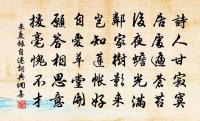 詩人甘寂寞
居處遍蒼苔
後夜蟾光滿
鄰家樹影來
豈知蓮帳好
自愛草堂開
願答相思意
援毫愧不才